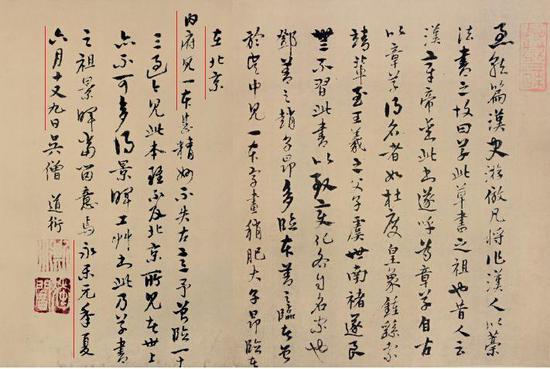 急就篇漢史游倣凡將作漢人以藁
法書之故曰草此草書之祖也昔人云
漢章帝愛此書遂呼為章草自古
以章草得名者如杜度皇象鍾繇索
靖輩至王羲之父子虞世南褚遂良
無不習此書以致變化各自名家也
鄧善之趙子昂多臨本善之臨本吾
於吳中見一本字畫稍肥大子昂臨本
在北京
内府見一本甚精妙不失古意予嘗臨一十
三過今見此本雖不及北京所見在世上
亦不可多得景暉工草書此乃草書
之祖景暉當留意焉永樂元年夏
六月十又九日吳僧 道衍